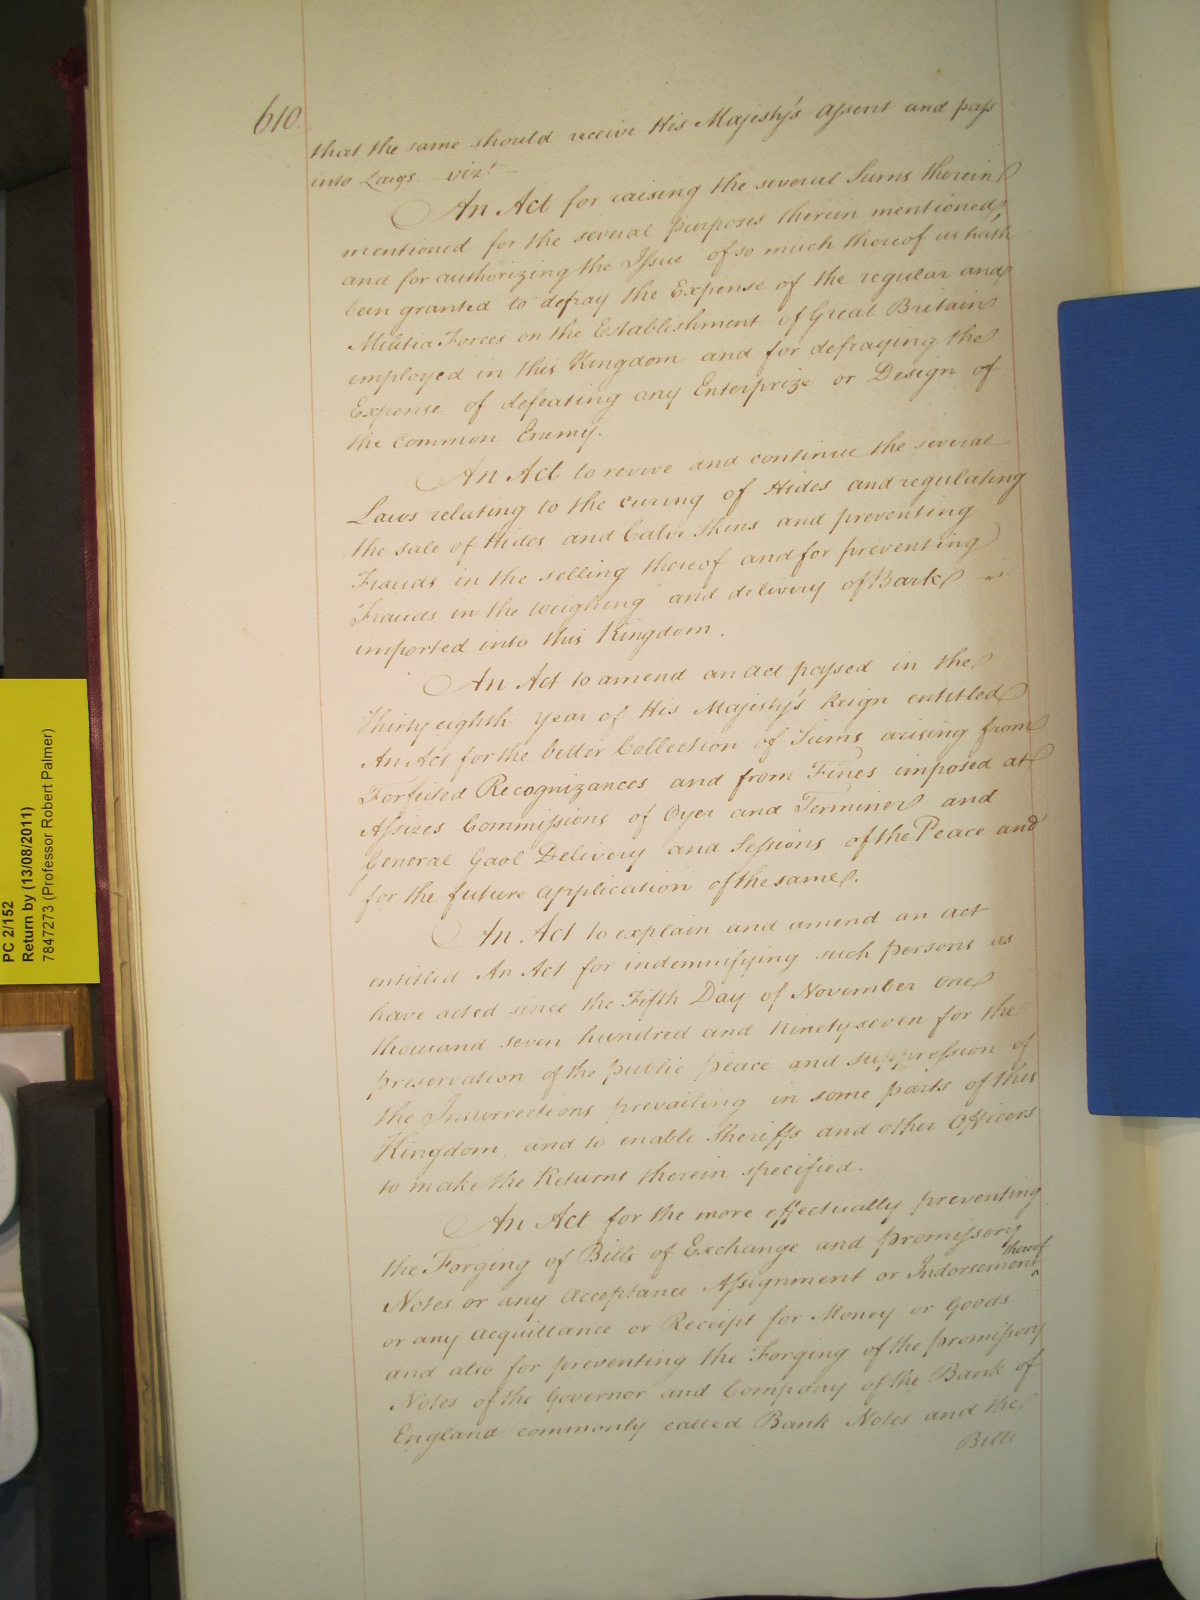 610.
that the same should receive His Majesty's Assent and pass
into Laws vizt
An Act for raising the several Sums therein
mentioned for the several purposes therein mentioned
and for authorizing the Issue of so much thereof as hath
been granted to defray the Expense of the regular and
Militia Forces on the Establishment of Great Britain
employed in this Kingdom and for defraying the
Expense of defeating any Enterprize or Design of
the Common Enemy.
An Act to revive and continue the several
Laws relating to the curing of Hides and regulating
the sale of Hides and Calve Skins and preventing
Frauds in the selling thereof and for preventing
Frauds in the weighing and delivery of Bark
imported into this Kingdom.
An Act to amend an act passed in the
Thirty eighth year of His Majesty's Reign entitled
An Act for the better Collection of Sums arising from
Forfeited Recognizances and from Fines imposed at
Assizes Commissions of Oyer and Terminer and
General Gaol Delivery and Sessions of the Peace and
for the future application of the same.
An Act to explain and amend an act
entitled An Act for indemnifying such persons as
have acted since the Fifth Day of November one
thousand seven hundred and Ninety seven for the
preservation of the public peace and suppression of
the Insurrections prevailing in some parts of this
Kingdom, and to enable Sheriffs and other Officers
to make the Returns therein specified.
An Act for the more effectually preventing
the Forging of Bills of Exchange and promissory
Notes or any Acceptance Assignment or Indorsement thereof
or any Acquittance or Receipt for Money or Goods
and also for preventing the Forging of the promissory
Notes of the Governor and Company of the Bank of
England commonly called Bank Notes and the
Bills
PC 2/152
Return by (13/08/2011)
7847273 (Professor Robert Palmer)